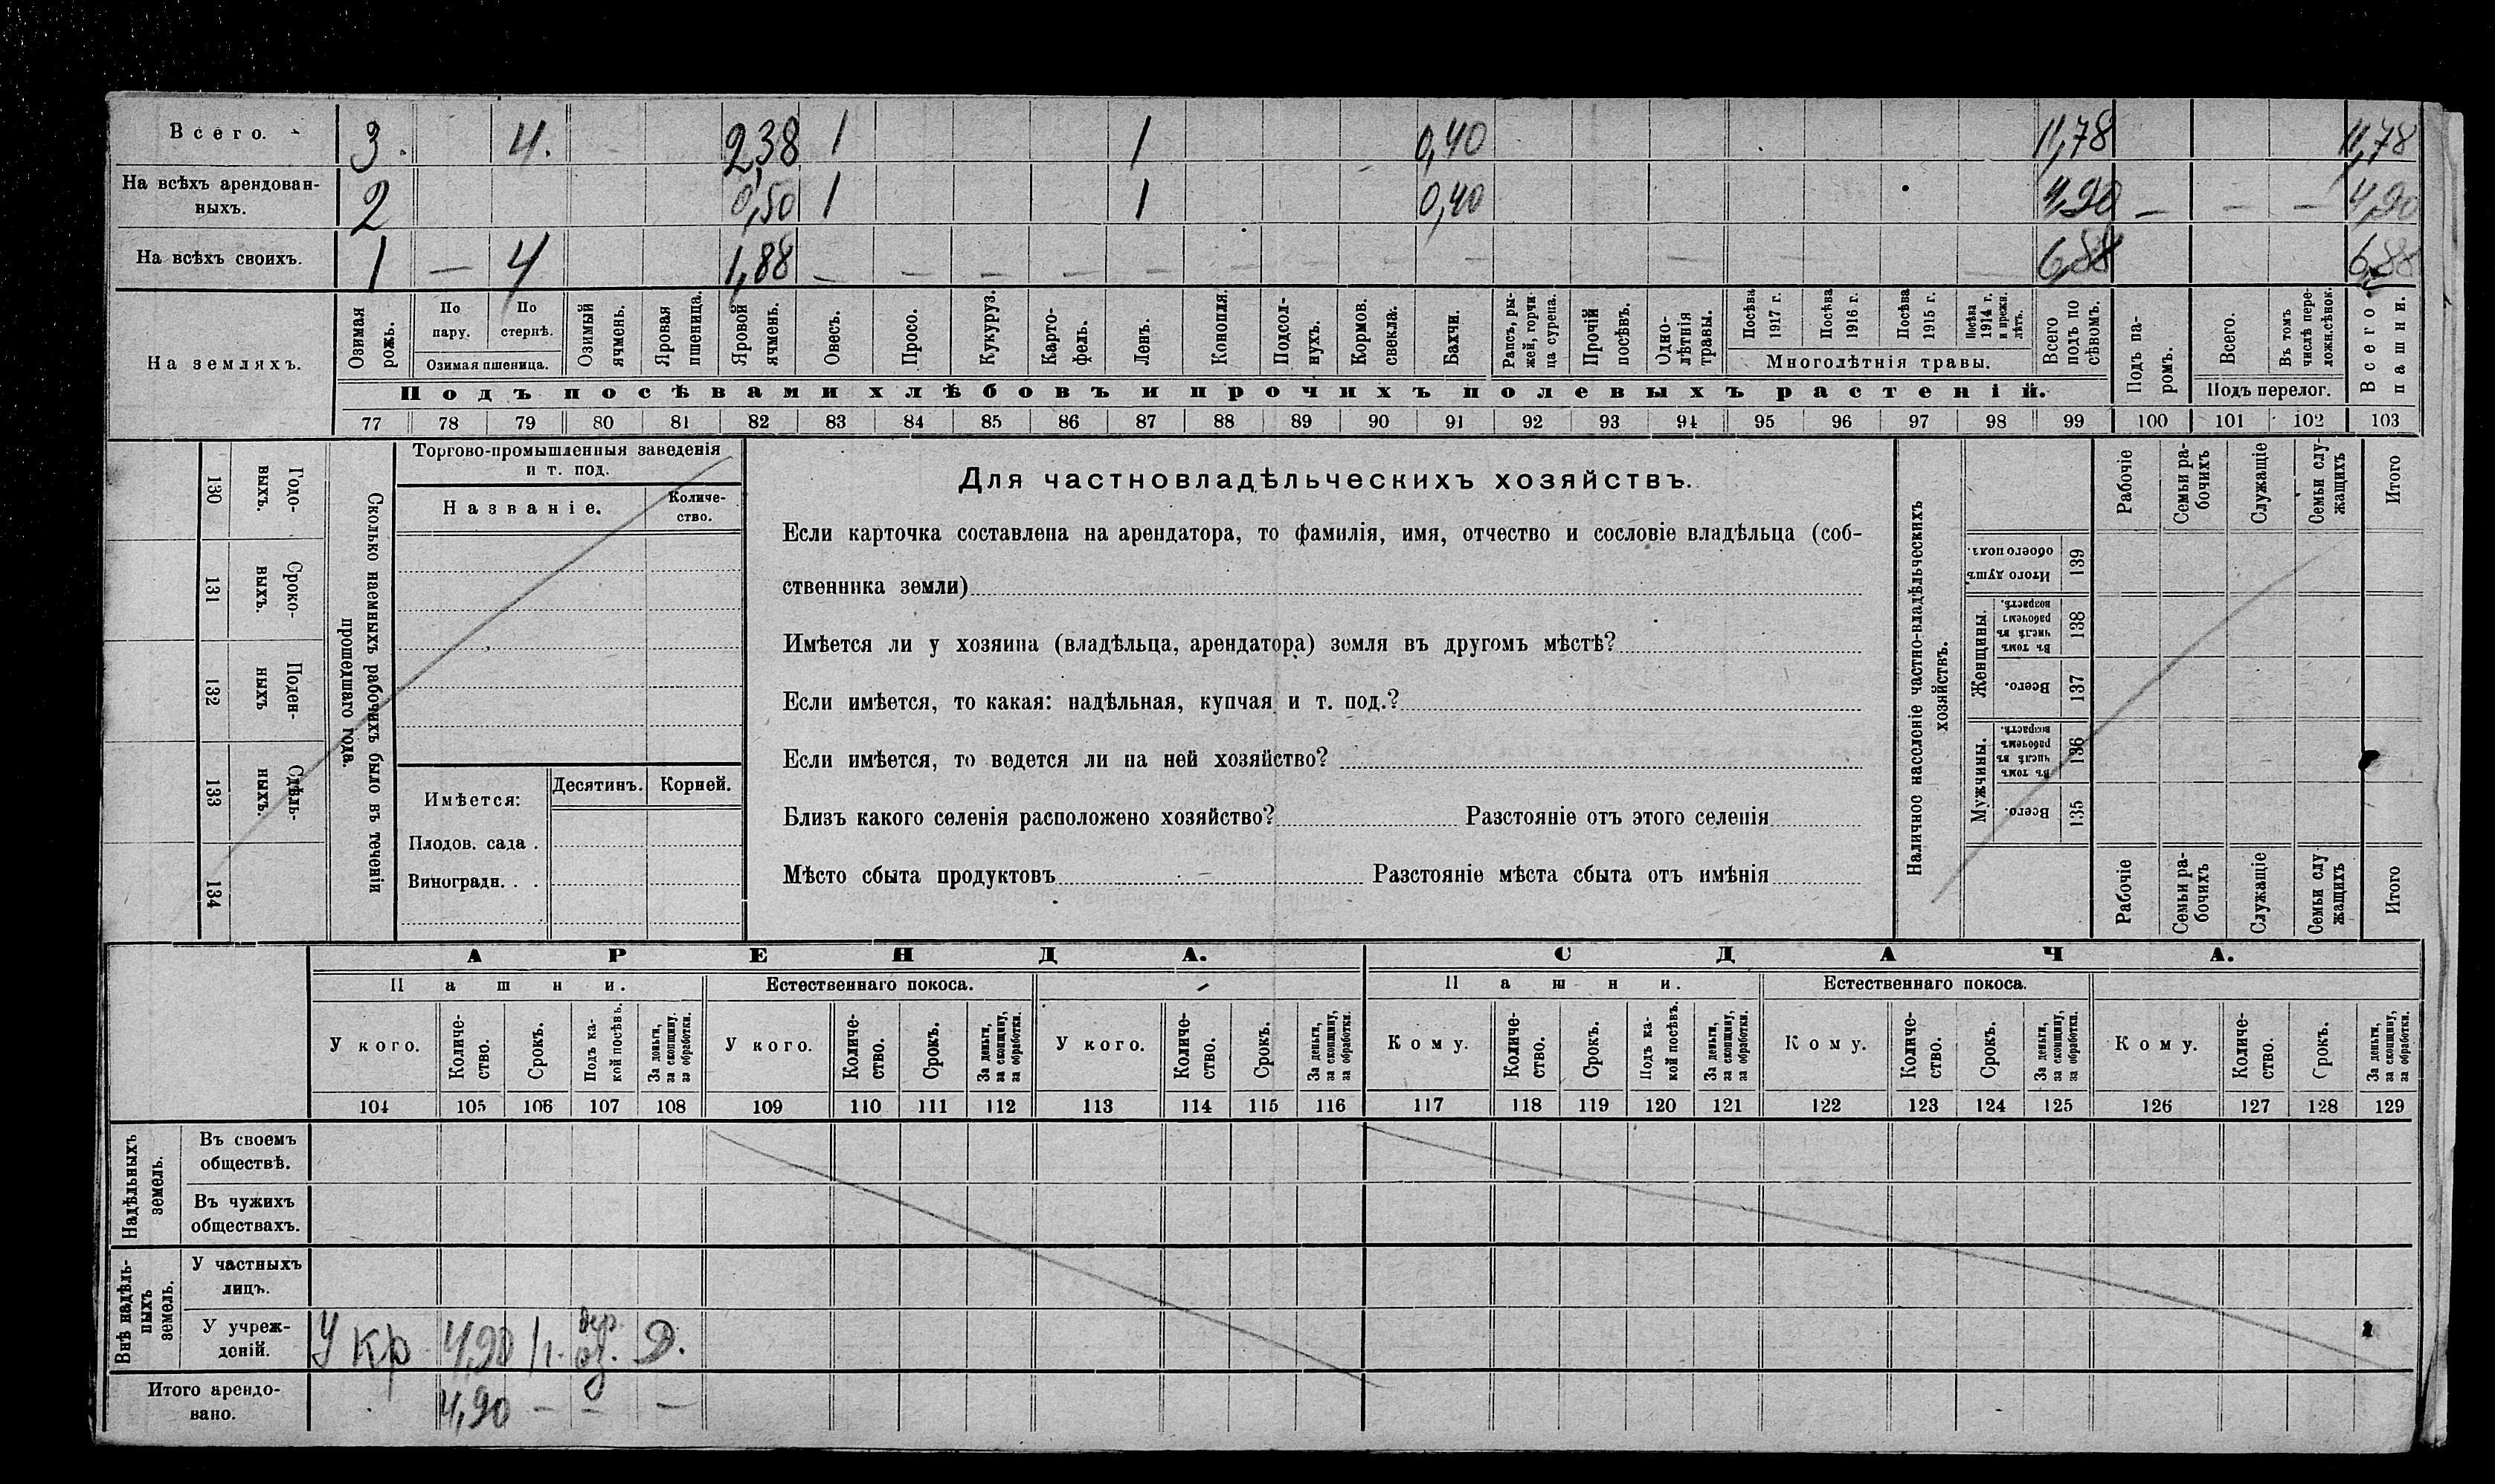 Всего. 3. 4. 2,38 1 1 0,40 11,78 11,78
На всѣхъ арендован-
ныхъ. 2 0,50 1 1 0,40 4,90 — — — 4,90
На всѣхъ своихъ. 1 — 4 1,88 — — — — — — — — — — — — — — — 6,88 6,88
На земляхъ.
Озимая рожь.
По пару.
По стернѣ.
Озимая пшеница.
Озимый ячмень.
Яровая пшеница.
Яровой ячмень.
Овесъ.
Просо.
Кукуруз.
Карто-
фель.
Ленъ.
Конопля.
Подсол-
нухъ.
Кормов.
свекла.
Бахчи.
Рапсъ, ры-
жей, горчи
ца сурепа.
Прочій
посѣвъ.
Одно-
лѣтнія
травы.
Посѣва
1917 г.
Посѣва
1916 г.
Посѣва
1915 г.
Посѣва
1914 г.
и прежн.
лѣтъ.
Многолѣтнія травы.
Всего
подъ по
сѣвомъ.
Подъ па-
ромъ.
Всего.
Въ томъ
числѣ пере-
ложн.сѣнок.
Подъ перелог.
Всего
пашни.
Подъ посѣвами хлѣбовъ и прочихъ полевыхъ растеній.
77 78 79 80 81 82 83 84 85 86 87 88 89 90 91 92 93 94 95 96 97 98 99 100 101 102 103
130 Годо-
выхъ.
131 Сроко-
выхъ.
132 Поден-
ныхъ
133 Сдѣль-
ныхъ.
134
Сколько наемныхъ рабочихъ было въ теченіи
прошедшаго года.
Торгово-промышленныя заведенія
и т. под.
Названіе.
Количе-
ство.
Имѣется:
Десятинъ. Корней.
Плодов. сада .
Виноградн. . .
Для частновладѣльческихъ хозяйствъ.
Если карточка составлена на арендатора, то фамилія, имя, отчество и сословіе владѣльца (соб-
ственника земли)
Имѣется ли у хозяина (владѣльца, арендатора) земля въ другомъ мѣстѣ?
Если имѣется, то какая: надѣльная, купчая и т. под.?
Если имѣется, то ведется ли на ней хозяйство?
Близъ какого селенія расположено хозяйство? Разстояніе отъ этого селенія
Мѣсто сбыта продуктовъ Разстояніе мѣста сбыта отъ имѣнія
Наличное населеніе частно-владѣльческихъ
хозяйствъ.
Рабочіе
Семьи ра-
бочихъ
Служащіе
Семьи слу-
жащихъ
Итого
Итого душъ
обоего пола.
139
Женщины.
Въ томъ
числѣ въ
рабочемъ
возрастѣ.
138
Всего.
137
Мужчины.
Въ томъ
числѣ въ
рабочемъ
возрастѣ.
136
Всего.
135
Рабочіе
Семьи ра-
бочихъ
Служащіе
Семьи слу
жащихъ
Итого
АРЕНДА. СДАЧА.
Пашни. Естественнаго покоса. Пашни. Естественнаго покоса.
У кого.
Количе-
ство.
Срокъ.
Подъ ка-
кой посѣвъ.
За деньги,
за скопщину.
за обработки.
У кого.
Количе-
ство.
Срокъ.
За деньги,
за скопщину,
за обработки.
У кого.
Количе-
ство.
Срокъ.
За деньги,
за скопщину,
за обработки.
Кому.
Количе-
ство.
Срокъ.
Подъ ка-
кой посѣвъ.
За деньги,
за скопщину,
за обработки.
Кому.
Количе-
ство.
Срокъ.
За деньги,
за скопщину,
за обработки.
Кому.
Количе-
ство.
Срокъ.
За деньги,
за скопщину,
за обработки.
104 105 106 107 108 109 110 111 112 113 114 115 116 117 118 119 120 121 122 123 124 125 126 127 128 129
Надѣльныхъ
земель.
Въ своемъ
обществѣ.
Въ чужихъ
обществахъ.
Внѣ надѣль-
ныхъ
земель.
У частныхъ
лицъ.
У учреж-
деній. У кр. 4,90 1 г.
Итого арендо-
вано. 4,90 — — —